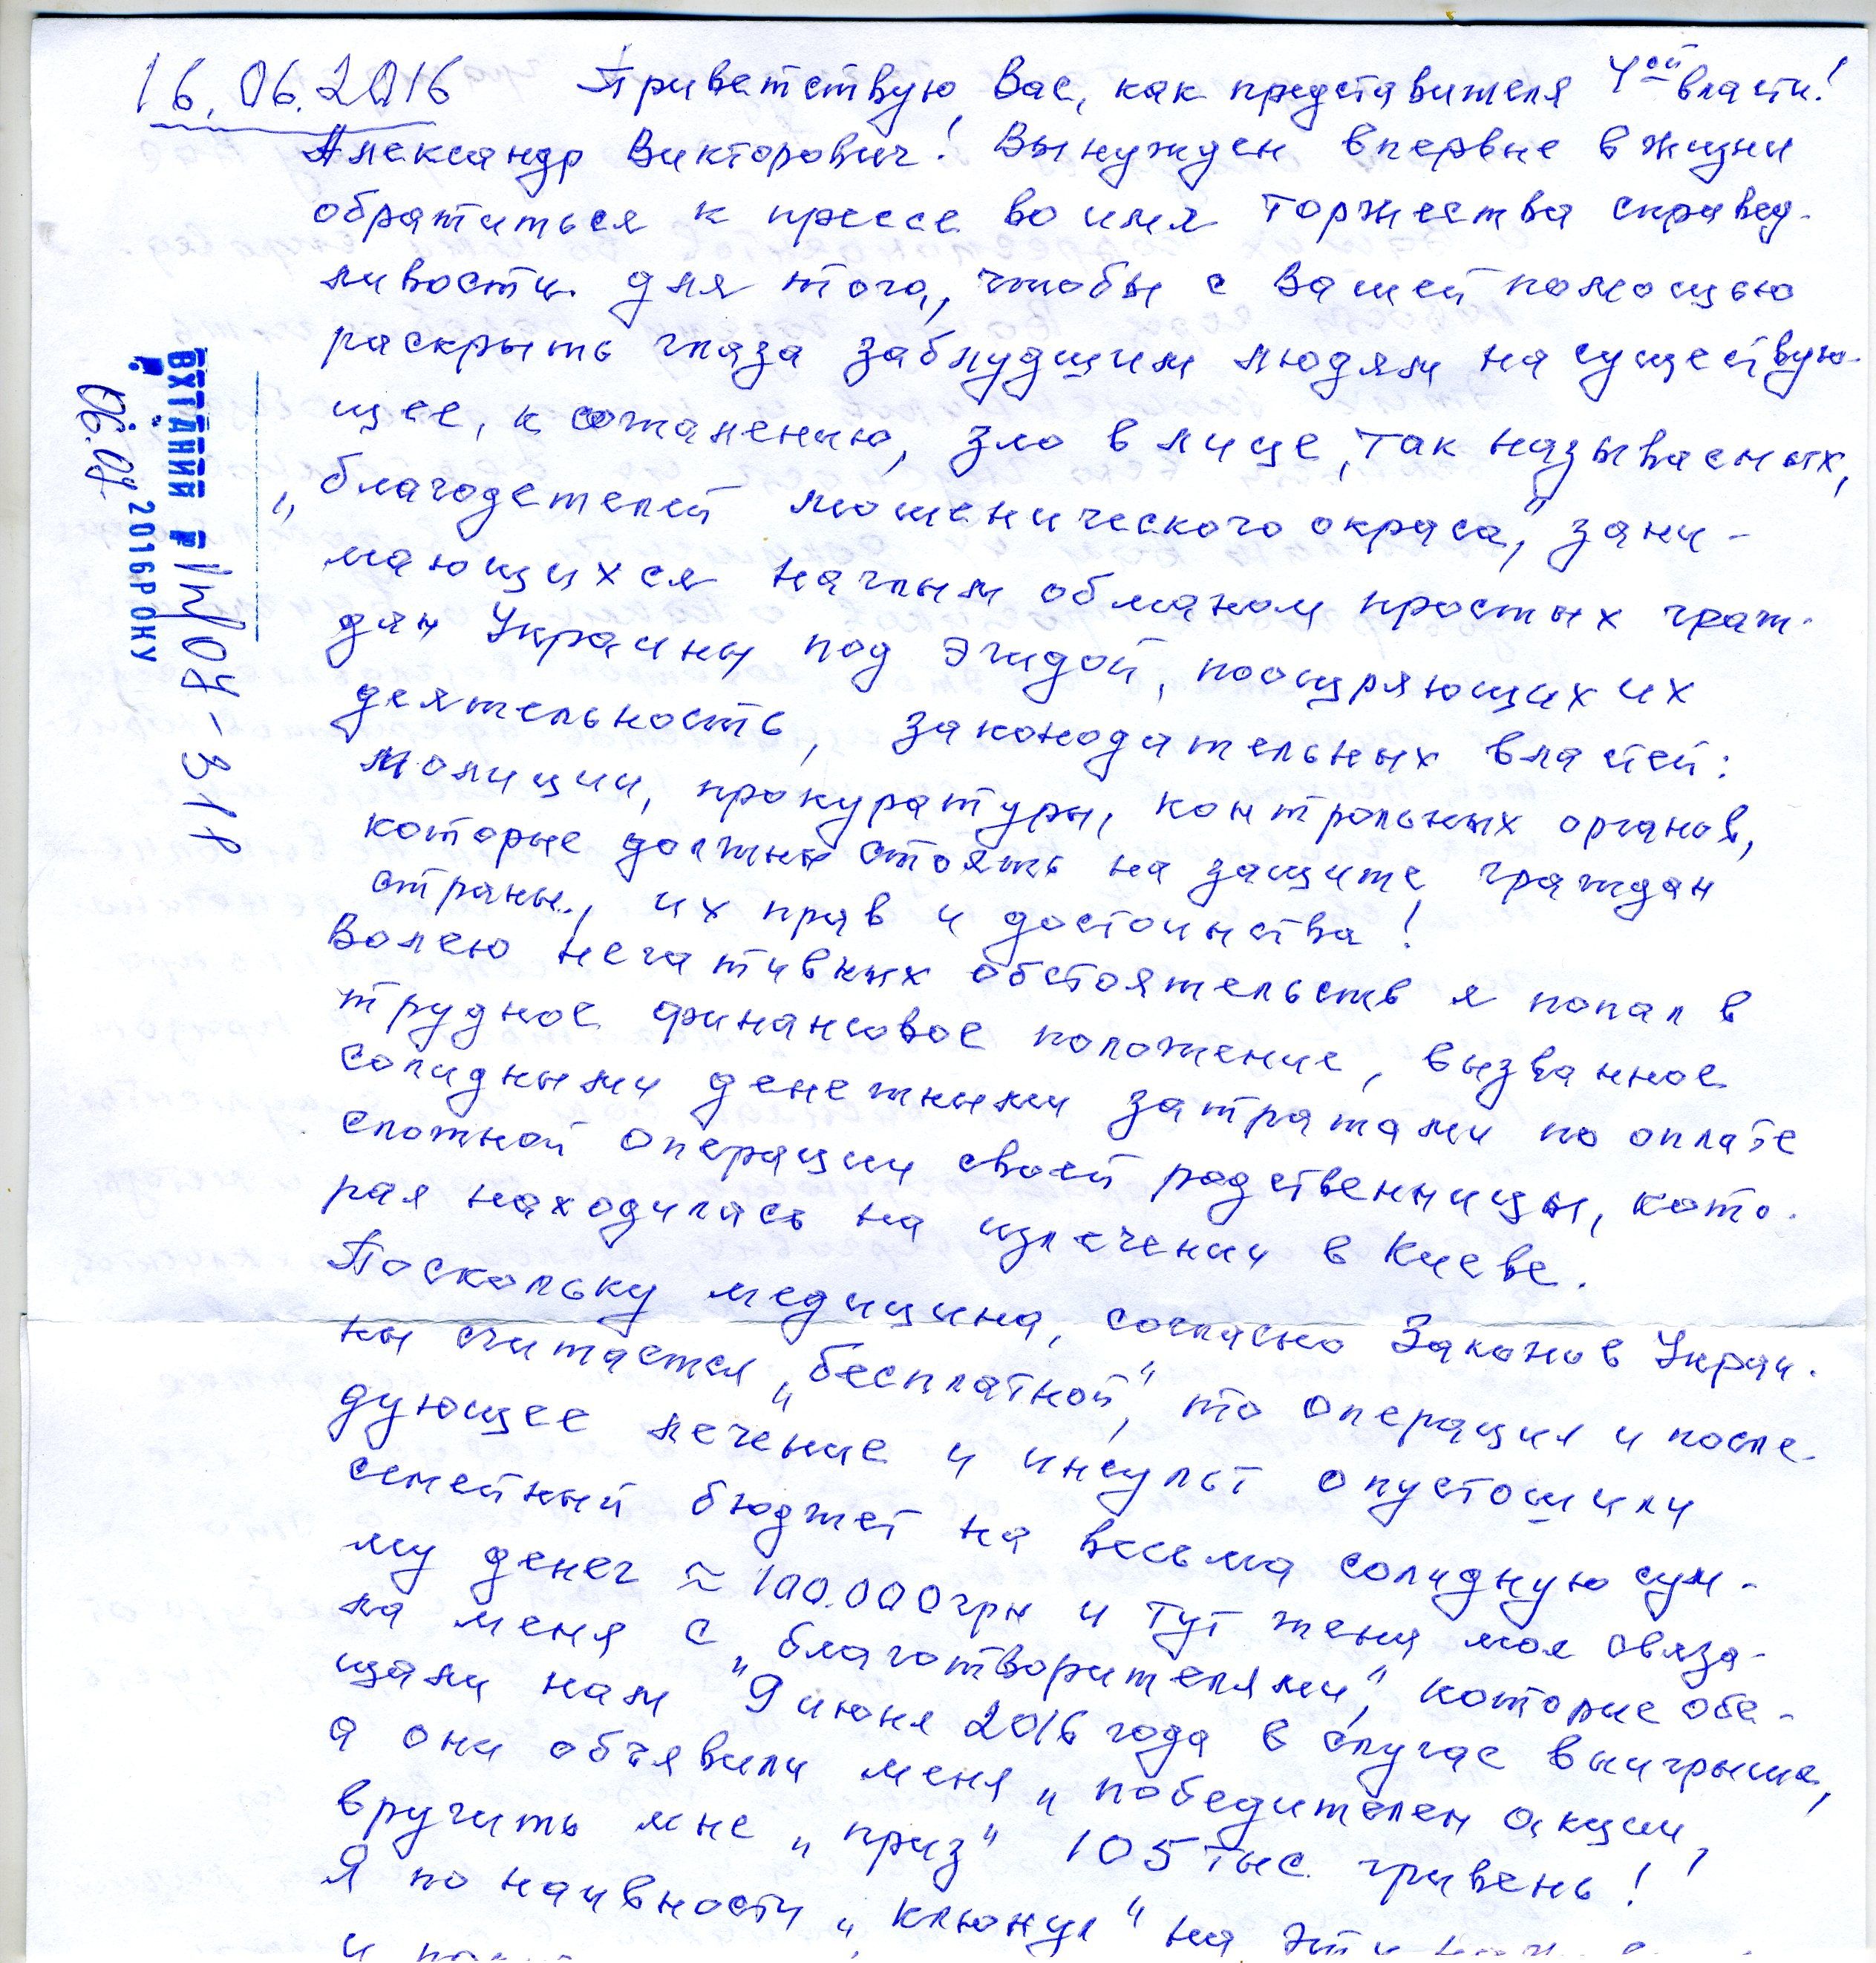 16.06.2016 Приветствую Вас, как представителя 4ой власти!
Александр Викторович! Вынужден впервые в жизни
обратиться к прессе во имя торжества справед-
ливости для того, чтобы с Вашей помощью
раскрыть глаза заблудшим людям на существую-
щее, к сожалению, зло в лице, так называемых,
„благодетелей мошенического окраса", зани-
мающихся наглым обманом простых граж-
дан Украины под эгидой, поощряющих их
деятельность, законодательных властей:
милиции, прокуратуры, контрольных органов,
которые должны стоять на защите граждан
страны, их прав и достоинства!
Волею негативных обстоятельств я попал в
трудное финансовое положение, вызванное
солидными денежными затратами по оплате
сложной операции своей родственницы, кото-
рая находилась на излечении в Киеве.
Поскольку медицина, согласно Законов Украи-
ны считается „бесплатной", то операция и после-
дующее лечение и инсульт опустошили
семейный бюджет на весьма солидную сум-
му денег ≈ 100.000 грн и тут жена моя связа-
ла меня с „благотворителями", которые обе-
щали нам "9 июня 2016 года в случае выигрыша,
а они объявили меня „победителем акции,
вручить мне „приз" 105 тыс. гривень!
Я по наивности „клюнул" на эти
и
ВХІДНИЙ №
06.07 2016 РОКУ